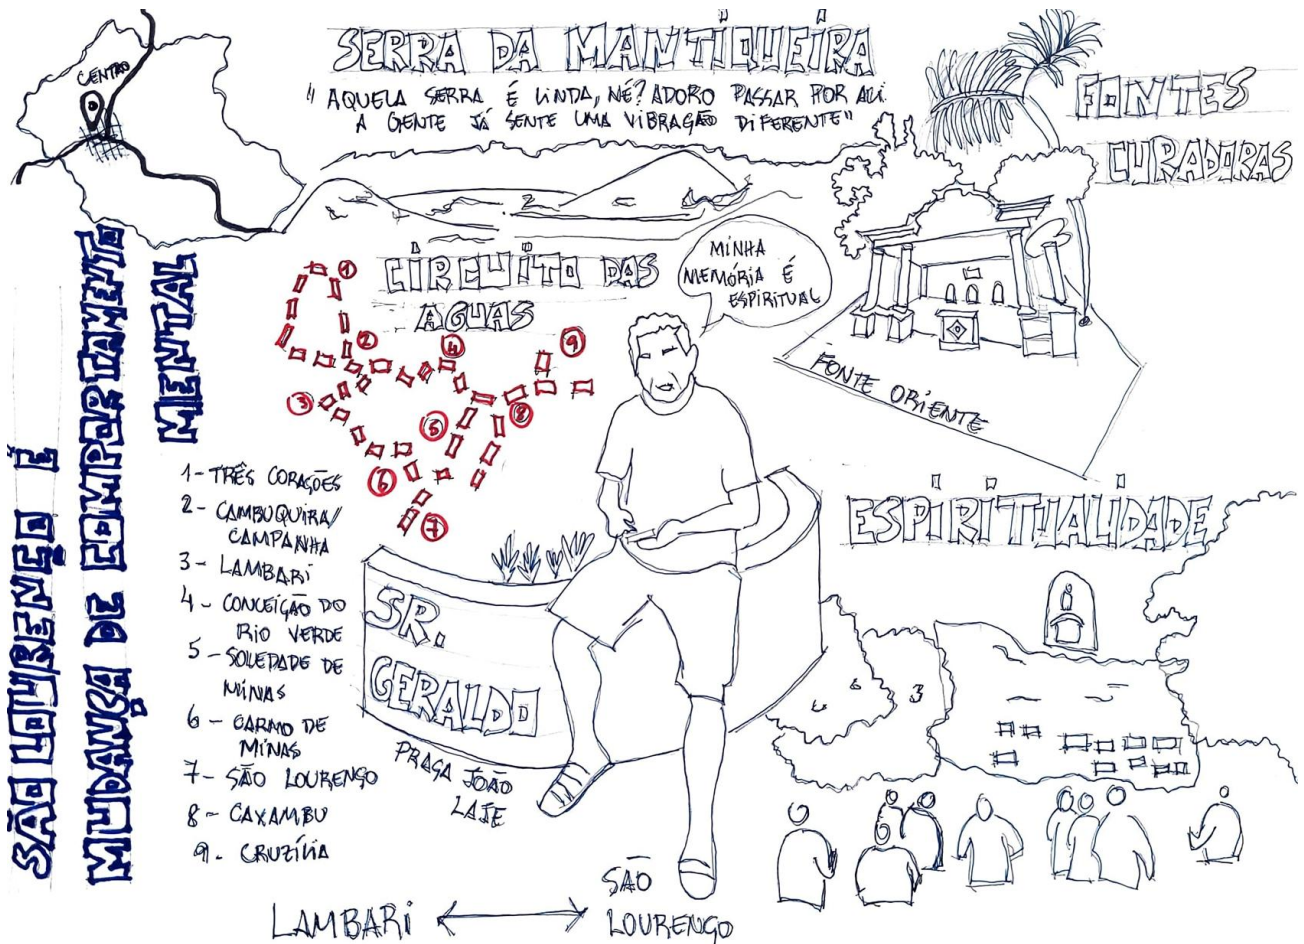 CENTRO
SERRA DA MANTIQUEIRA
"AQUELA SERRA É LINDA, NÉ? ADORO PASSAR POR ALI.
A GENTE JÁ SENTE UMA VIBRAÇÃO DIFERENTE"
FONTES
CURADORAS
SÃO LOURENÇO É
MUDANÇA DE COMPORTAMENTO
MENTAL
CIRCUITO DAS
AGUAS
MINHA
MEMÓRIA É
ESPIRITUAL
FONTE ORIENTE
1
2
4
9
3
5
8
6
7
1- TRÊS CORAÇÕES
2- CAMBUQUIRA/
CAMPANHA
3- LAMBARI
4- CONCEIÇÃO DO
RIO VERDE
5- SOLEDADE DE
MINAS
6- CARMO DE
MINAS
7- SÃO LOURENÇO
8- CAXAMBU
9. CRUZÍLIA
ESPIRITUALIDADE
SR.
GERALDO
PRAÇA JOÃO
LAJE
LAMBARI
SÃO
LOURENÇO